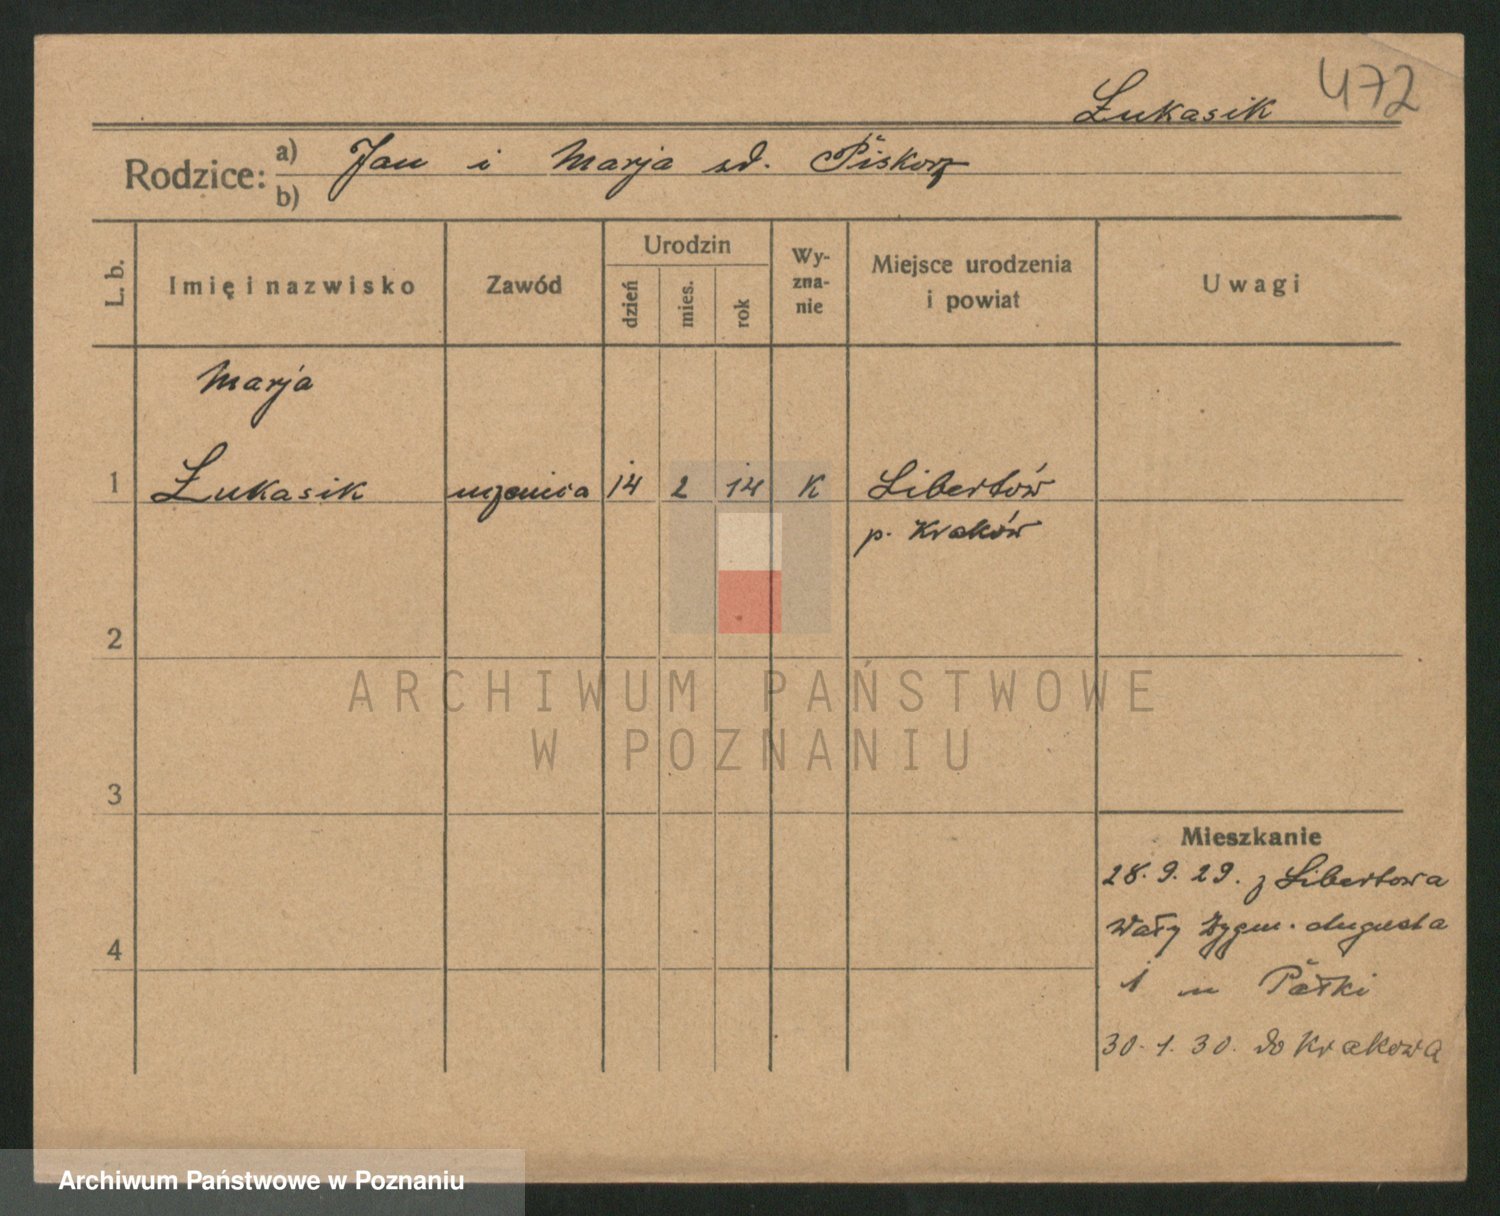 Łukasik 472
Rodzice: a) Jan i Marja zd. Piskorz
b)
L. b.
Imię i nazwisko
Zawód
Urodzin
dzień
mies.
rok
Wy-
zna-
nie
Miejsce urodzenia
i powiat
Uwagi
Marja
1 Łukasik uczenica 14 2 14 K Libertów
p. Kraków
2
ARCHIWUM PAŃSTWOWE
W POZNANIU
3
Mieszkanie
28. 9. 29. z Libertowa
Wały Zygm. Augusta
4
1 u Pałki
30. 1. 30. do Krakowa
Archiwum Państwowe w Poznaniu